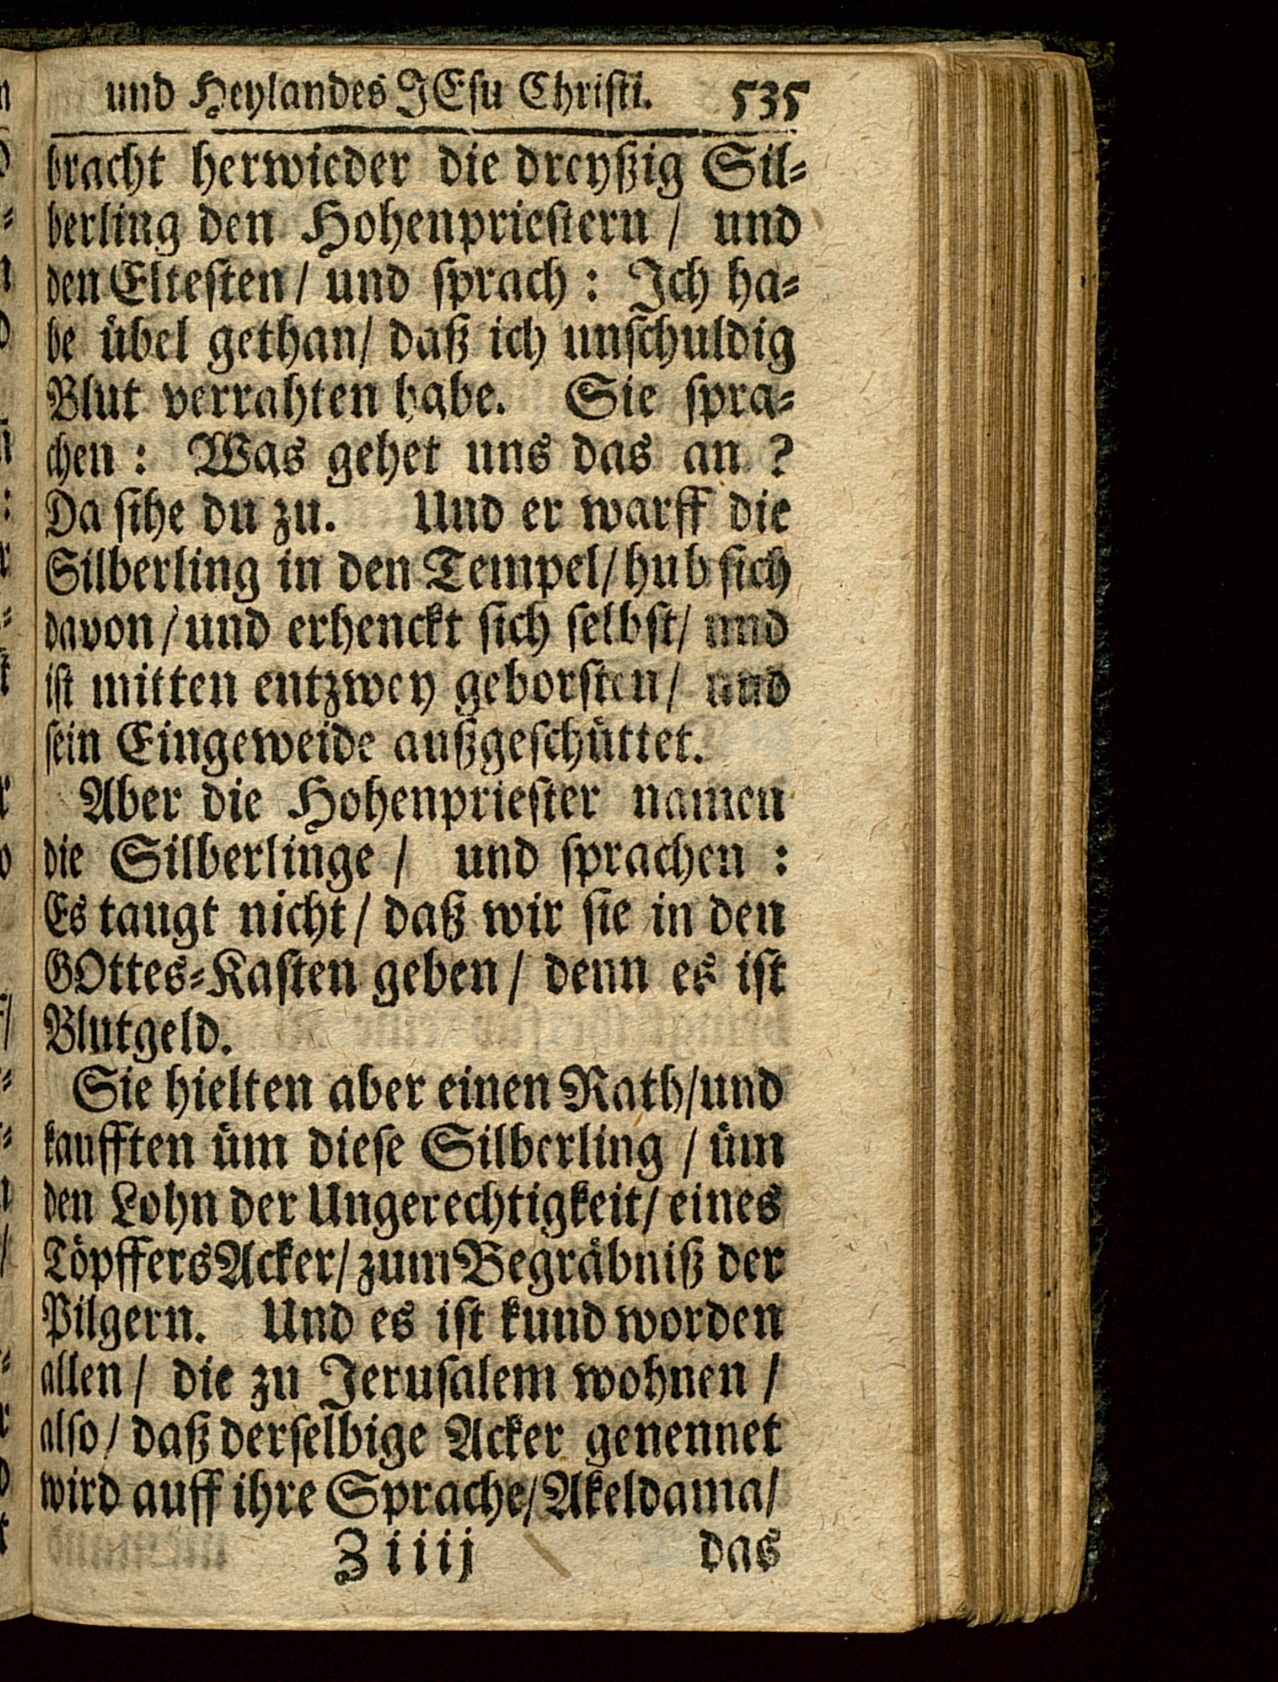 und Heylandes JEsu Christi. 535
bracht herwieder die dreyßig Sil-
berling den Hohenpriestern / und
den Eltesten / und sprach : Ich ha-
be übel gethan/ daß ich unschuldig
Blut verrahten habe. Sie spra-
chen : Was gehet uns das an ?
Da sihe du zu. Und er warff die
Silberling in den Tempel/ hub sich
davon / und erhenckt sich selbst/ und
ist mitten entzwey geborsten/ und
sein Eingeweide außgeschüttet.
Aber die Hohenpriester namen
die Silberlinge / und sprachen :
Es taugt nicht/ daß wir sie in den
GOttes-Kasten geben / denn es ist
Blutgeld.
Sie hielten aber einen Rath/und
kaufften üm diese Silberling / üm
den Lohn der Ungerechtigkeit/ eines
Töpffers Acker/ zum Begräbniß der
Pilgern. Und es ist kund worden
allen / die zu Jerusalem wohnen /
also / daß derselbige Acker genennet
wird auff ihre Sprache/ Akeldama/
Z iiij das